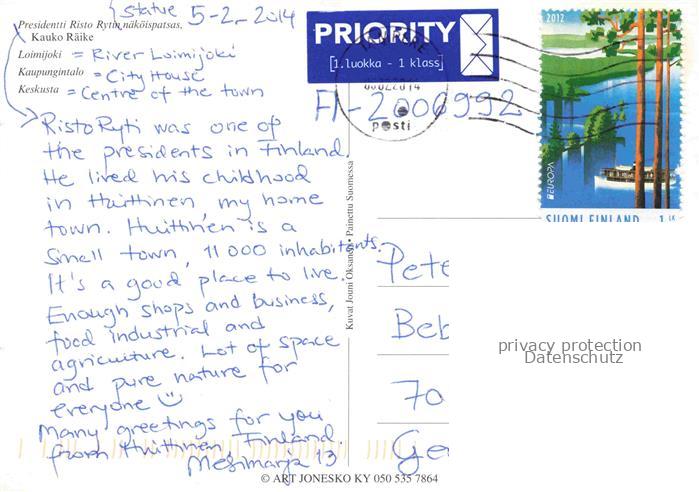 statue 5-2-2014
Presidentti Risto Rytin näköispatsas,
Kauko Räike
Loimijoki = River Loimijoki
Kaupungintalo = City House
Keskusta = Centre of the town
Risto Ryti was one of
the presidents in Finland.
He lived his childhood
in Huittinen, my home
town. Huittinen is a
small town, 11 000 inhabitants.
It's a good place to live.
Enough shops and business,
food industrial and
agriculture. Lot of space
and pure nature for
everyone
Many greetings for you
from Huittinen, Finland.
PRIORITY
[1.luokka - 1 klass]
posti
FI-2006992
2012
EUROPA
SUOMI FINLAND
Kuvat Jouni Oksanen • Painettu Suomessa
Pete
Beb
70
Ge
privacy protection
Datenschutz
© ART JONESKO KY 050 535 7864